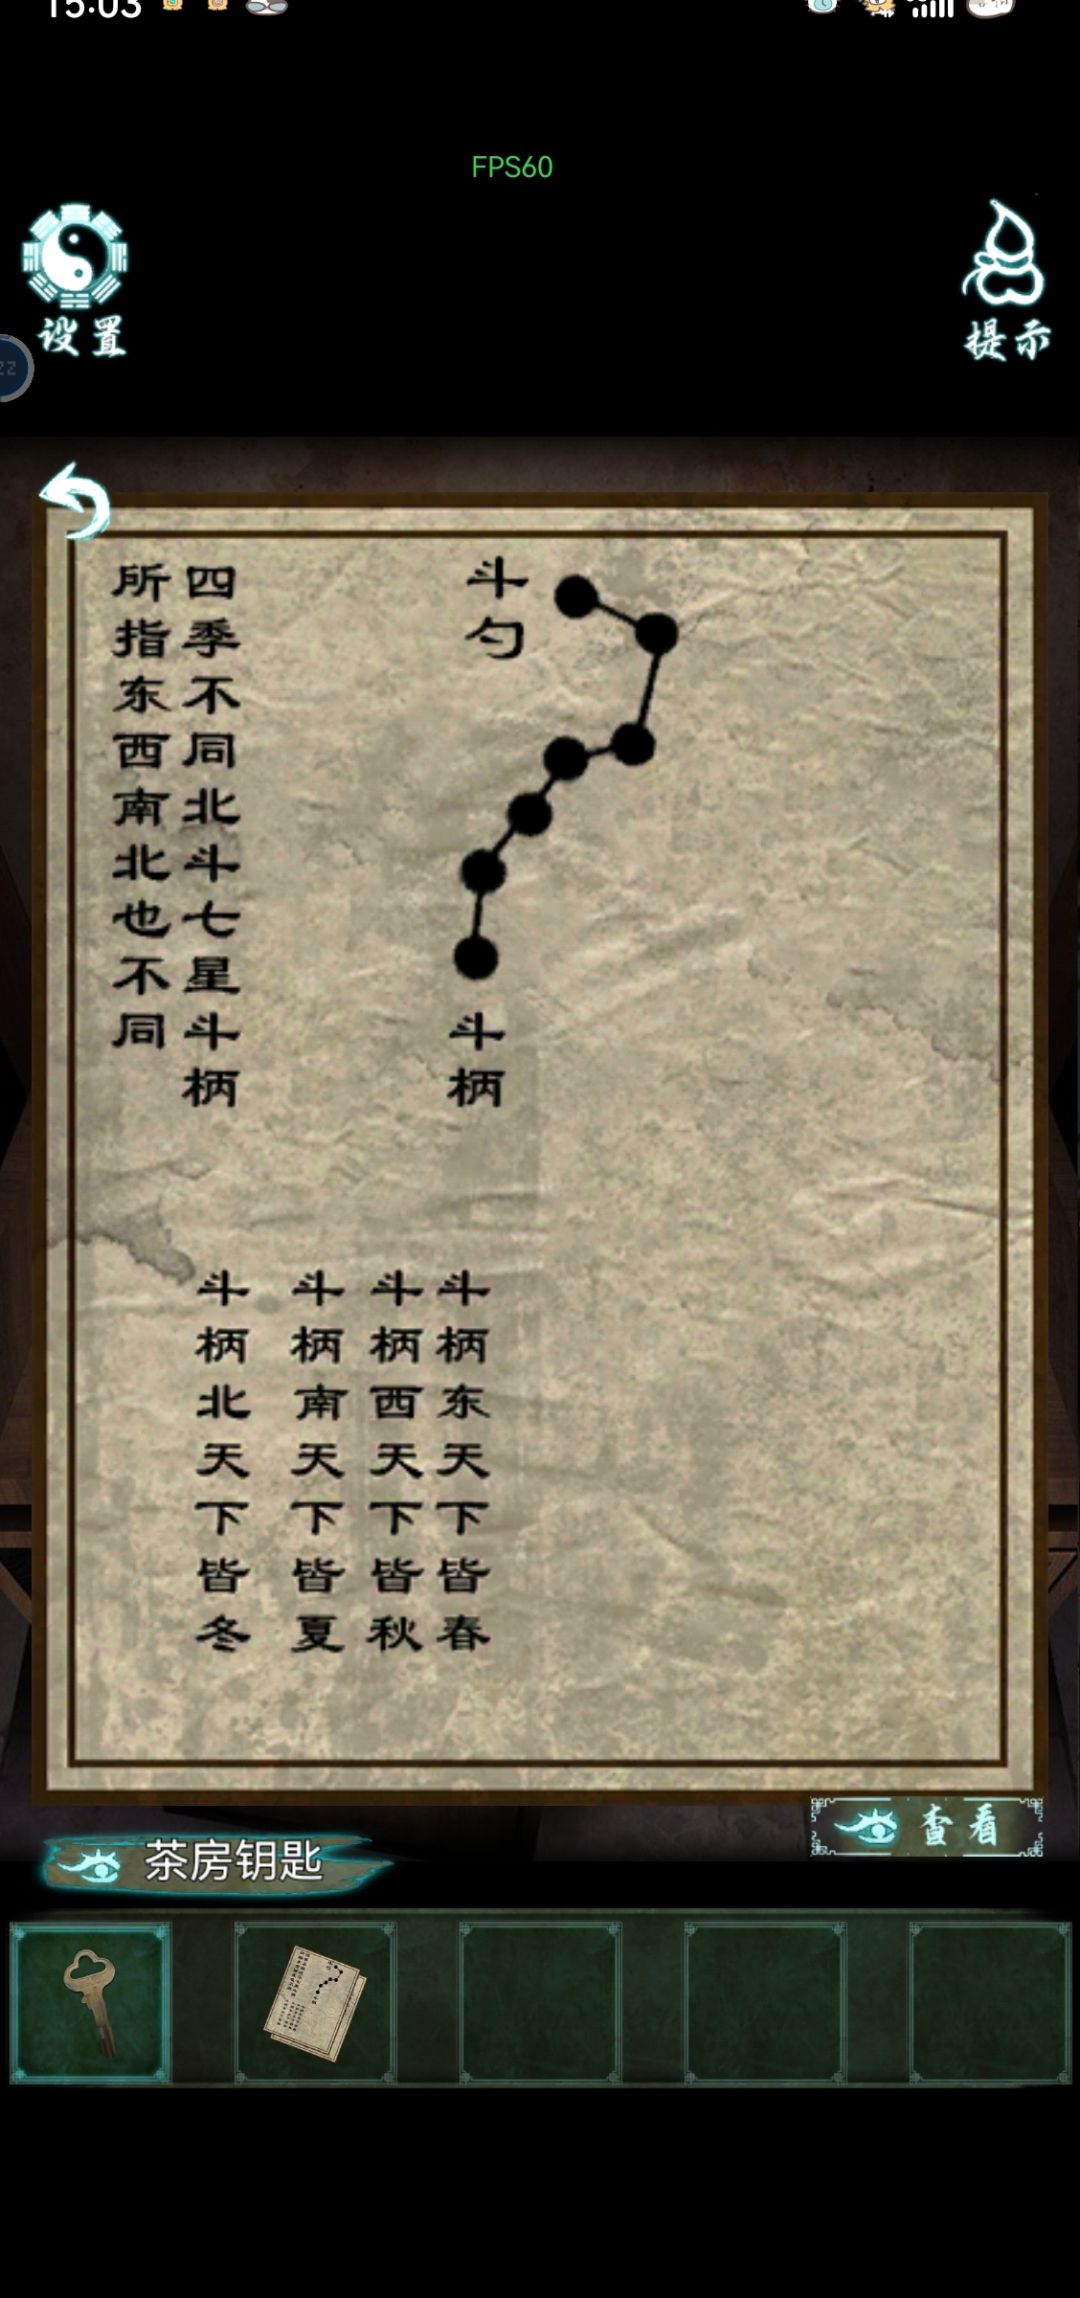 15:03
FPS60
设置
提示
四季不同北斗七星斗柄
所指东西南北也不同
斗勺
斗柄
斗柄东天下皆春
斗柄西天下皆秋
斗柄南天下皆夏
斗柄北天下皆冬
查看
茶房钥匙